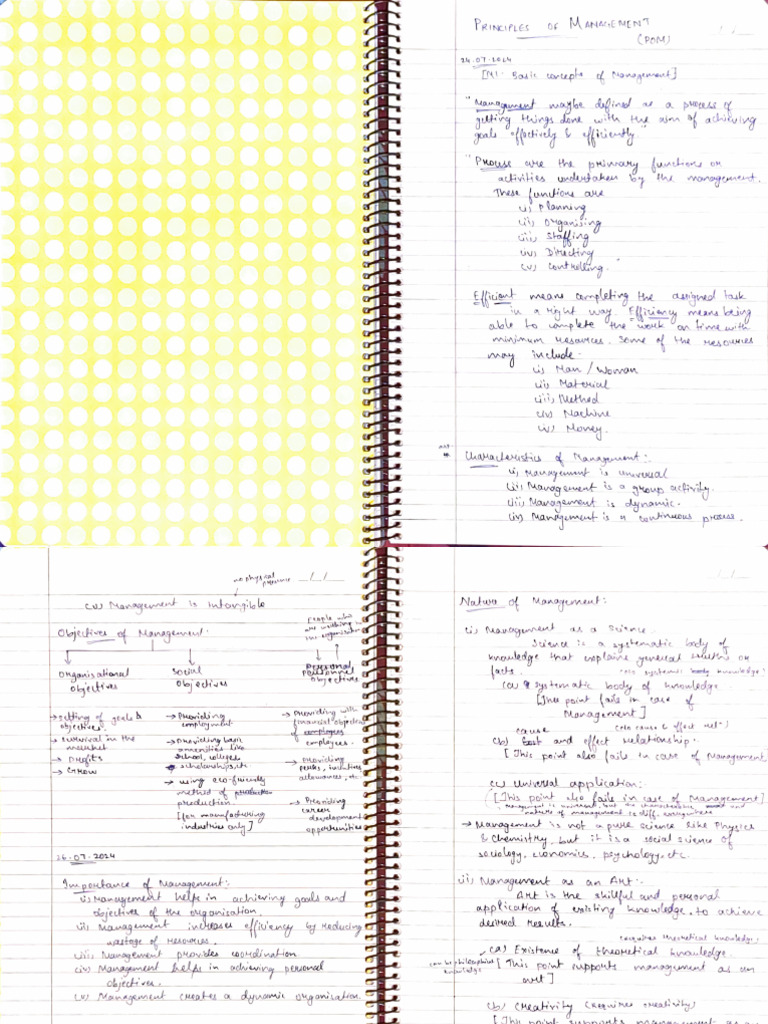 PRINCIPLES OF MANAGEMENT
(POM)
24.07.2024
[M1: Basic concepts of Management]
"Management maybe defined as a process of
getting things done with the aim of achieving
goals effectively & efficiently."
"Process are the primary functions or
activities undertaken by the management.
These functions are
(i) Planning
(ii) Organising
(iii) Staffing
(iv) Directing
(v) Controlling."
Efficient means completing the assigned task
in a right way. Efficiency means being
able to complete the work on time with
minimum resources. Some of the resources
may include:
(i) Man / Woman
(ii) Material
(iii) Method
(iv) Machine
(v) Money.
Characteristics of Management:
(i) Management is universal
(ii) Management is a group activity.
(iii) Management is dynamic.
(iv) Management is a continuous process.
no physical
presence
(v) Management is Intangible
Objectives of Management:
People who
are working in
the organisation
Organisational
Objectives
Social
Objectives
Personnel
Objectives
→ Setting of goals &
objectives.
→ Survival in the
market
→ Profits
→ Grow
→ Providing
employment
→ Providing basic
amenities like
school, colleges
scholarships
→ using eco-friendly
method of
production.
[for manufacturing
industries only]
→ Providing with
financial objective
of employees
employees.
→ Providing
perks, incentives
allowances, etc.
→ Providing
career
development
opportunities
26.07.2024
Importance of Management:
(i) Management helps in achieving goals and
objectives of the organisation.
(ii) Management increases efficiency by reducing
wastage of resources.
(iii) Management provides coordination.
(iv) Management helps in achieving personal
objectives.
(v) Management creates a dynamic organisation.
Nature of Management:
(i) Management as a Science.
Science is a systematic body of
knowledge that explains general truths or
facts.
(no systematic body knowledge)
(a) systematic body of knowledge
[This point fails in case of
Management]
cause
(no cause & effect rel")
(b) and effect relationship.
[This point also fails in case of Management]
(c) Universal application:
[This point also fails in case of Management]
nature of management is diff. everywhere
→ Management is not a pure science like Physics
& Chemistry, but it is a social science of
sociology, economics, psychology, etc.
(ii) Management as an Art:
Art is the skillful and personal
application of existing knowledge to achieve
desired results.
(requires theoretical knowledge)
(a) Existence of theoretical knowledge.
can be philosophical
knowledge
[This point supports management as an
art]
(b) Creativity (requires creativity)
[This point supports management as